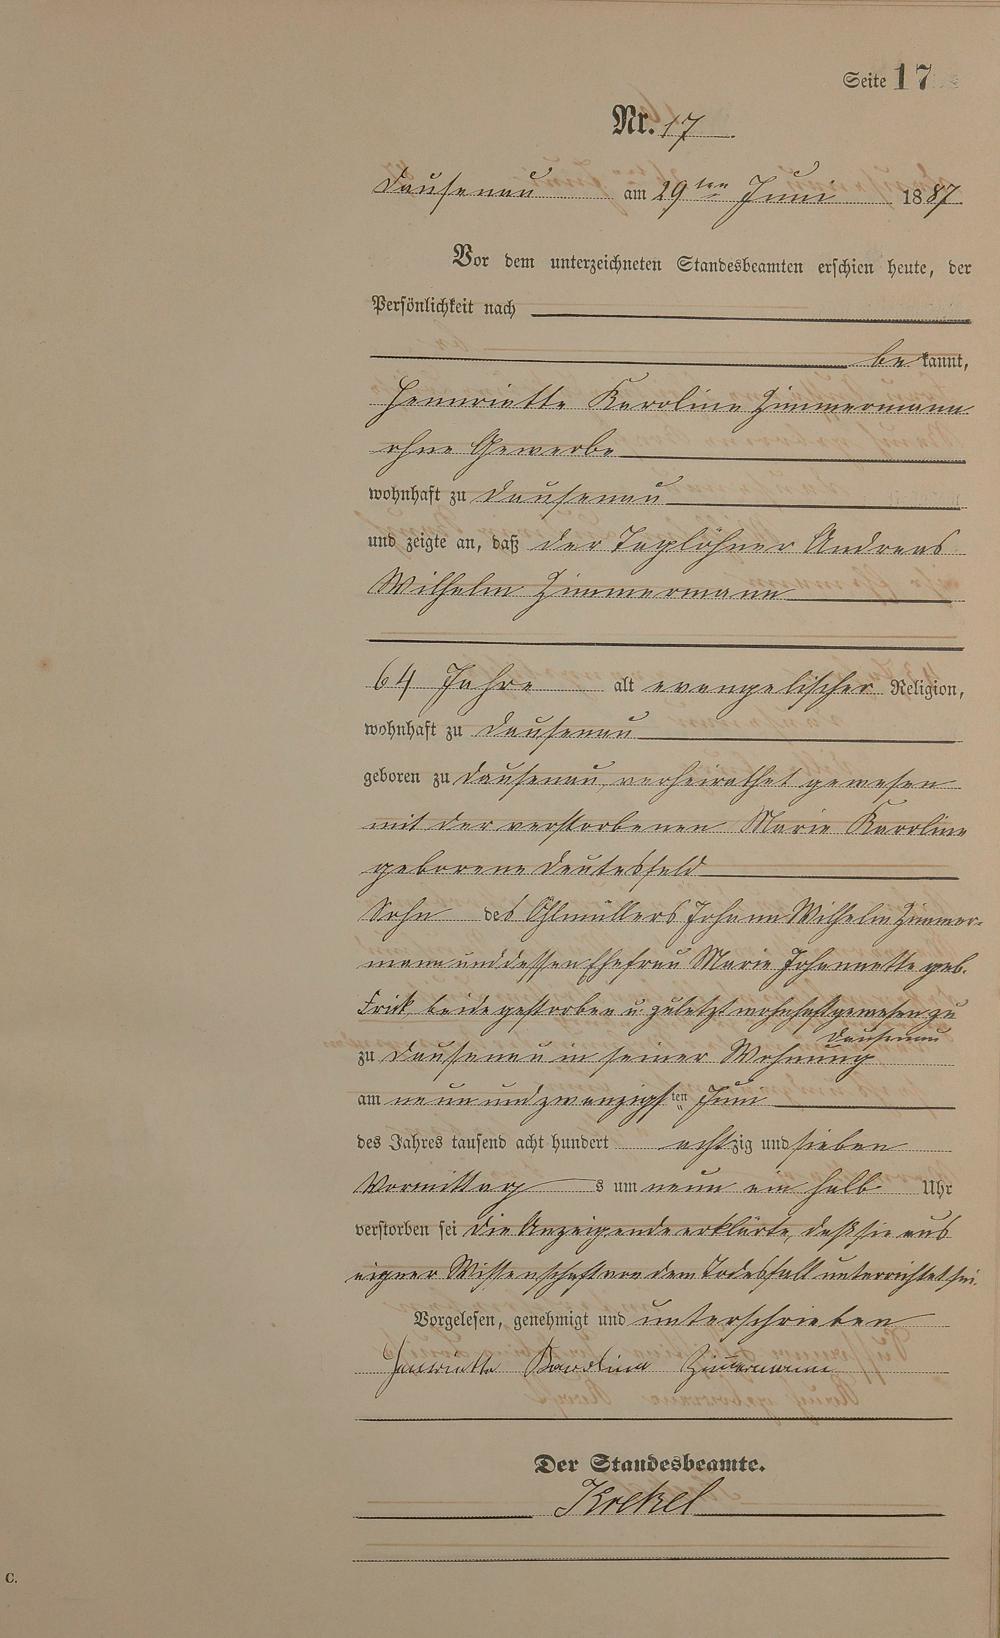 Seite 17
Nr. 17
Dausenau am 29ten Juni 1887.
Vor dem unterzeichneten Standesbeamten erschien heute, der
Persönlichkeit nach
bekannt,
Henriette Karoline Zimmermann
ohne Gewerbe
wohnhaft zu Dausenau
und zeigte an, daß der Taglöhner Andreas
Wilhelm Zimmermann
64 Jahre alt evangelischer Religion,
wohnhaft zu Dausenau
geboren zu Dausenau, verheirathet gewesen
mit der verstorbenen Marie Karoline
geborene Deutesfeld
Sohn des Ohlmüllers Johann Wilhelm Zimmer-
mann und dessen Ehefrau Marie Johannette geb.
Frick, beide gestorben u. zuletzt wohnhaft gewesen zu
Dausenau
zu Dausenau in seiner Wohnung
am neun und zwanzigsten Juni
des Jahres tausend acht hundert achtzig und sieben
Vormittags um neun ein halb Uhr
verstorben sei Die Anzeigende erklärte, daß sie aus
eigner Wissenschaft von dem Todesfall unterrichtet sei.
Vorgelesen, genehmigt und unterschrieben
Henriette Karolina Zimmermann
Der Standesbeamte.
Krekel
C.